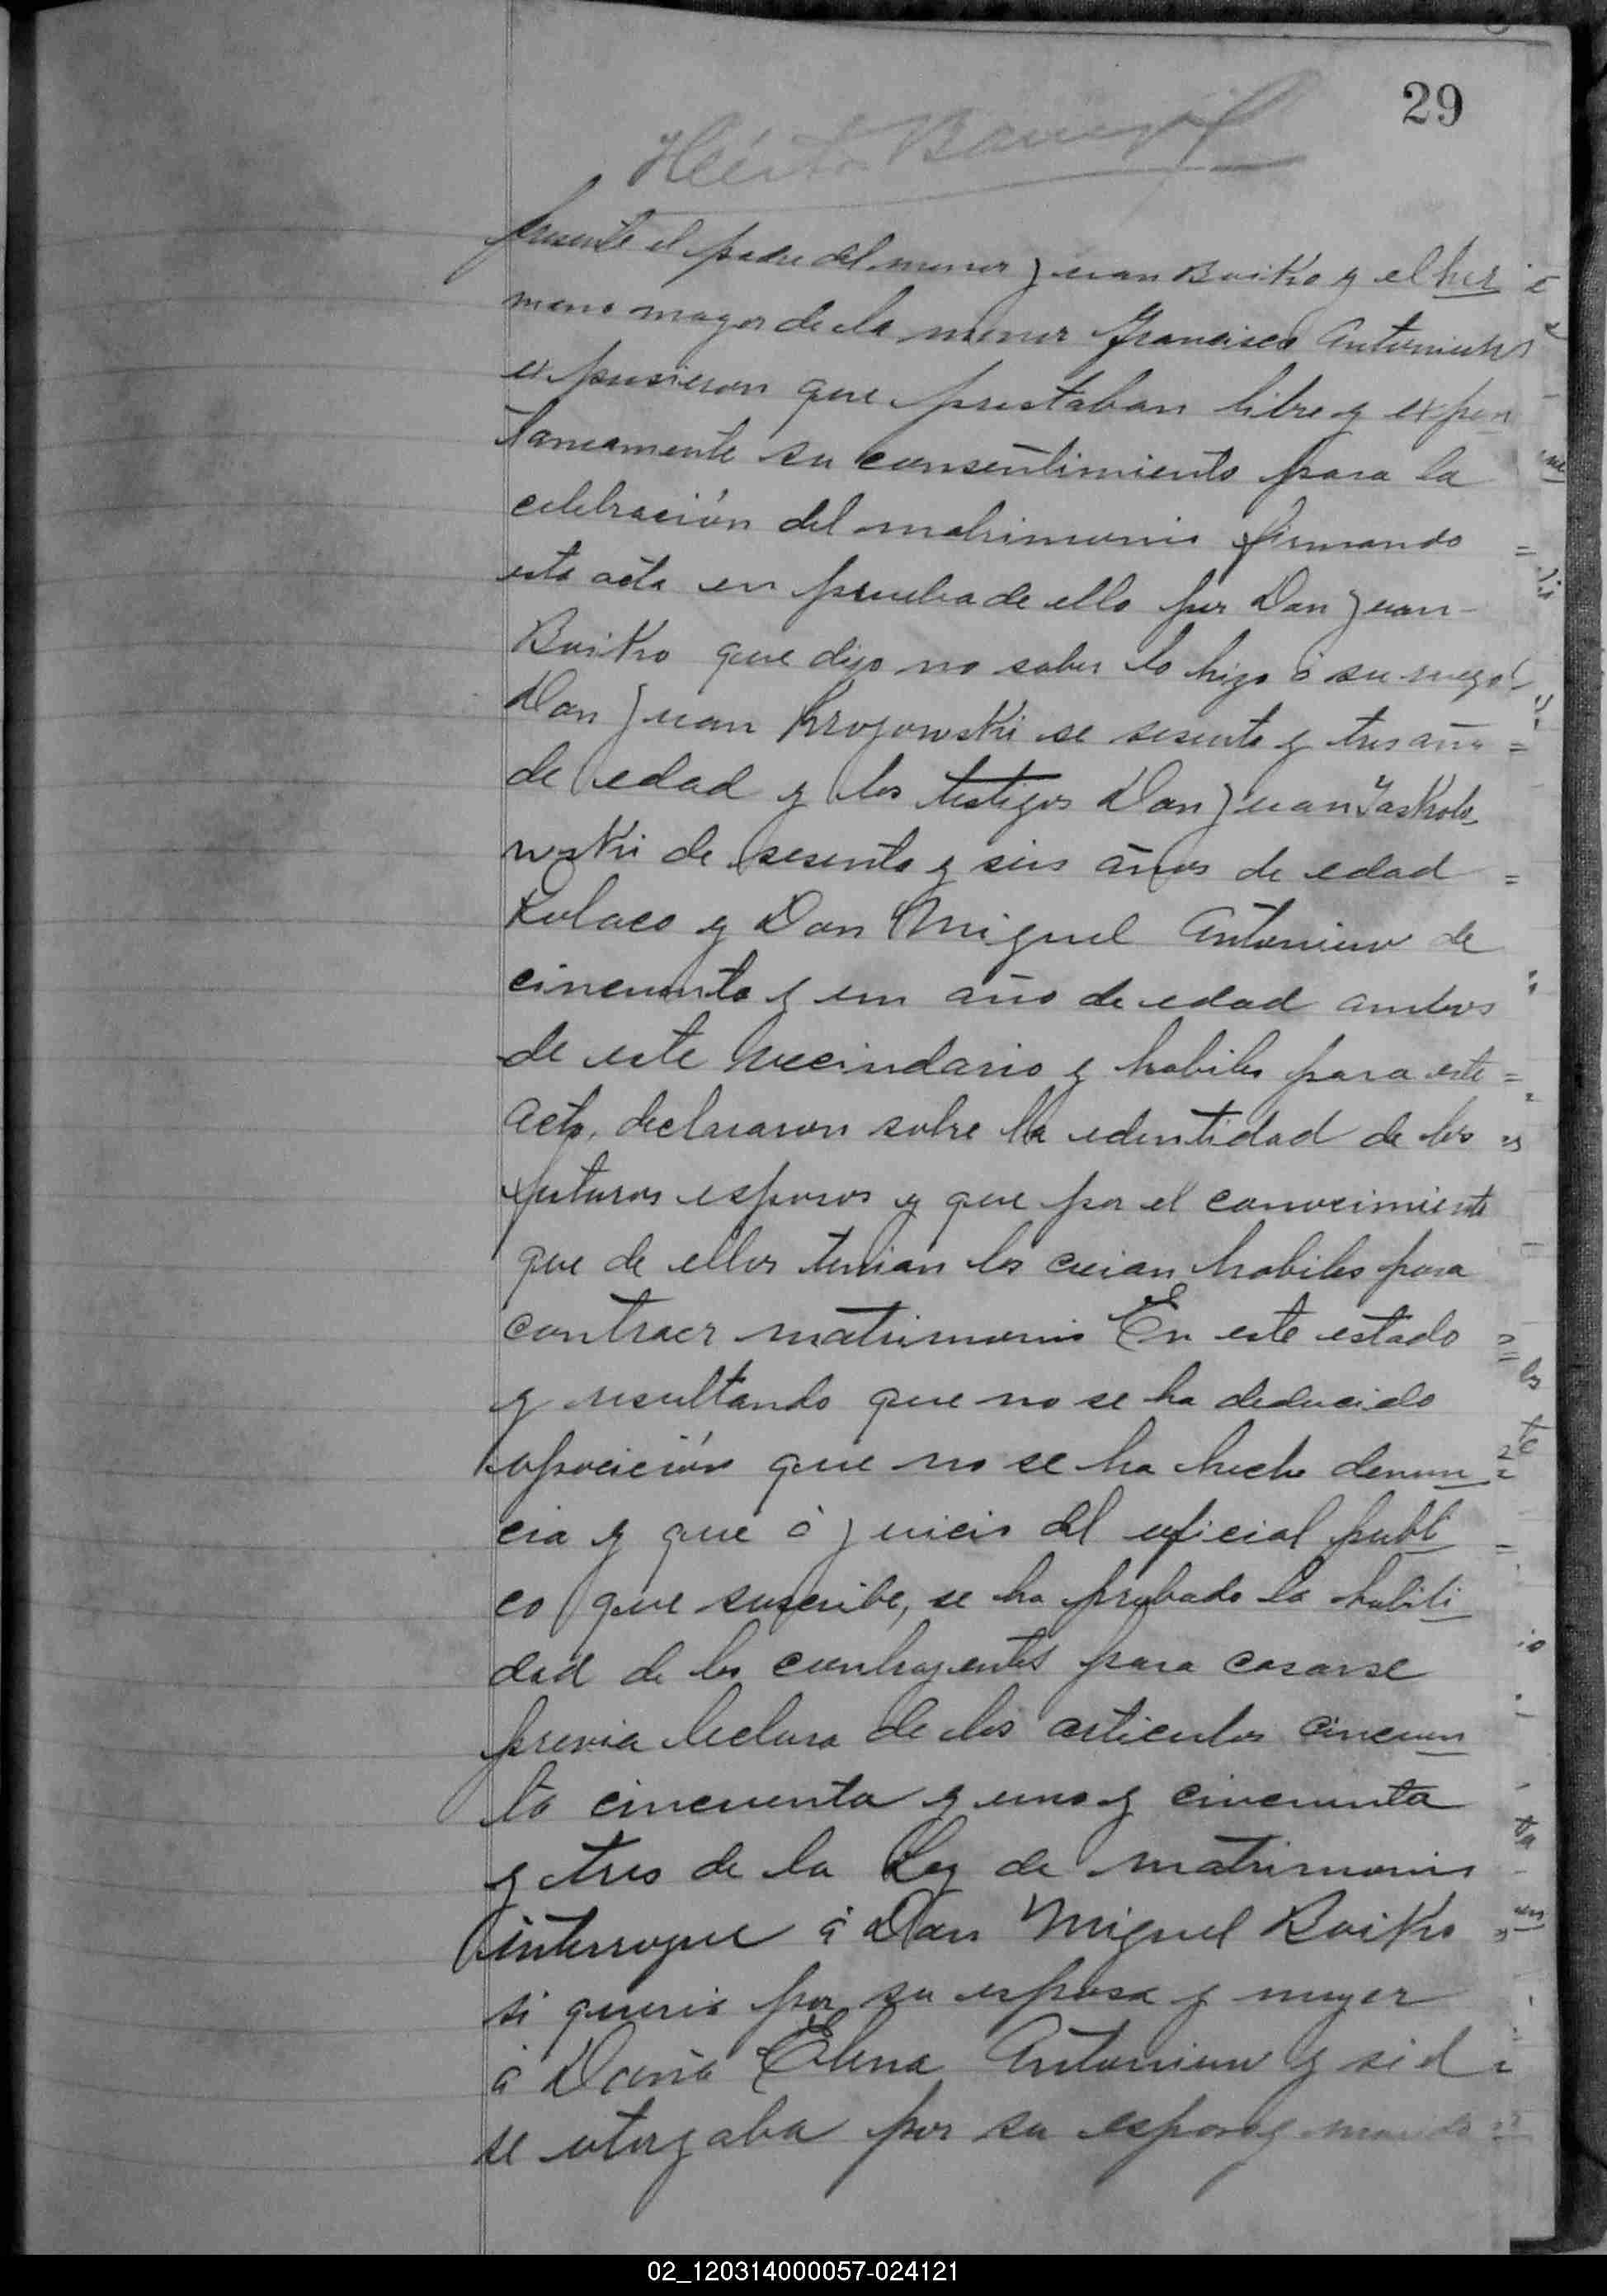 29
Héctor
presente el padre del menor Juan Boiko y el her
mano mayor de la menor Francisco Antoniuw
expusieron que prestaban libre y expon
taneamente su consentimiento para la
celebración del matrimonio firmando
esta acta en prueba de ello por Don Juan
Boiko que dijo no saber lo hizo á su ruego
Don Juan Krojowski se sesenta y tres año
de edad y los testigos Don Juan Jaskolo
wski de sesenta y seis años de edad
Polaco y Don Miguel Antoniuw de
cincuenta y un año de edad ambos
de este vecindario y habiles para este
acto, declararon sobre la identidad de los
futuros esposos y que por el conocimiento
que de ellos tenian los creian habiles para
contraer matrimonio En este estado
y resultando que no se ha deducido
oposición que no se ha hecho denun
cia y que á juicio del oficial publi
co que suscribe, se ha probado la habili
dad de los contrayentes para casarse
previa lectura de los articulos cincuen
ta cincuenta y uno y cincuenta
y tres de la Ley de matrimonio
interrogue á Don Miguel Boiko
si queria por su esposa y mujer
á Doña Elena Antoniuw y si el
se otorgaba por su esposo y marido
02_120314000057-024121